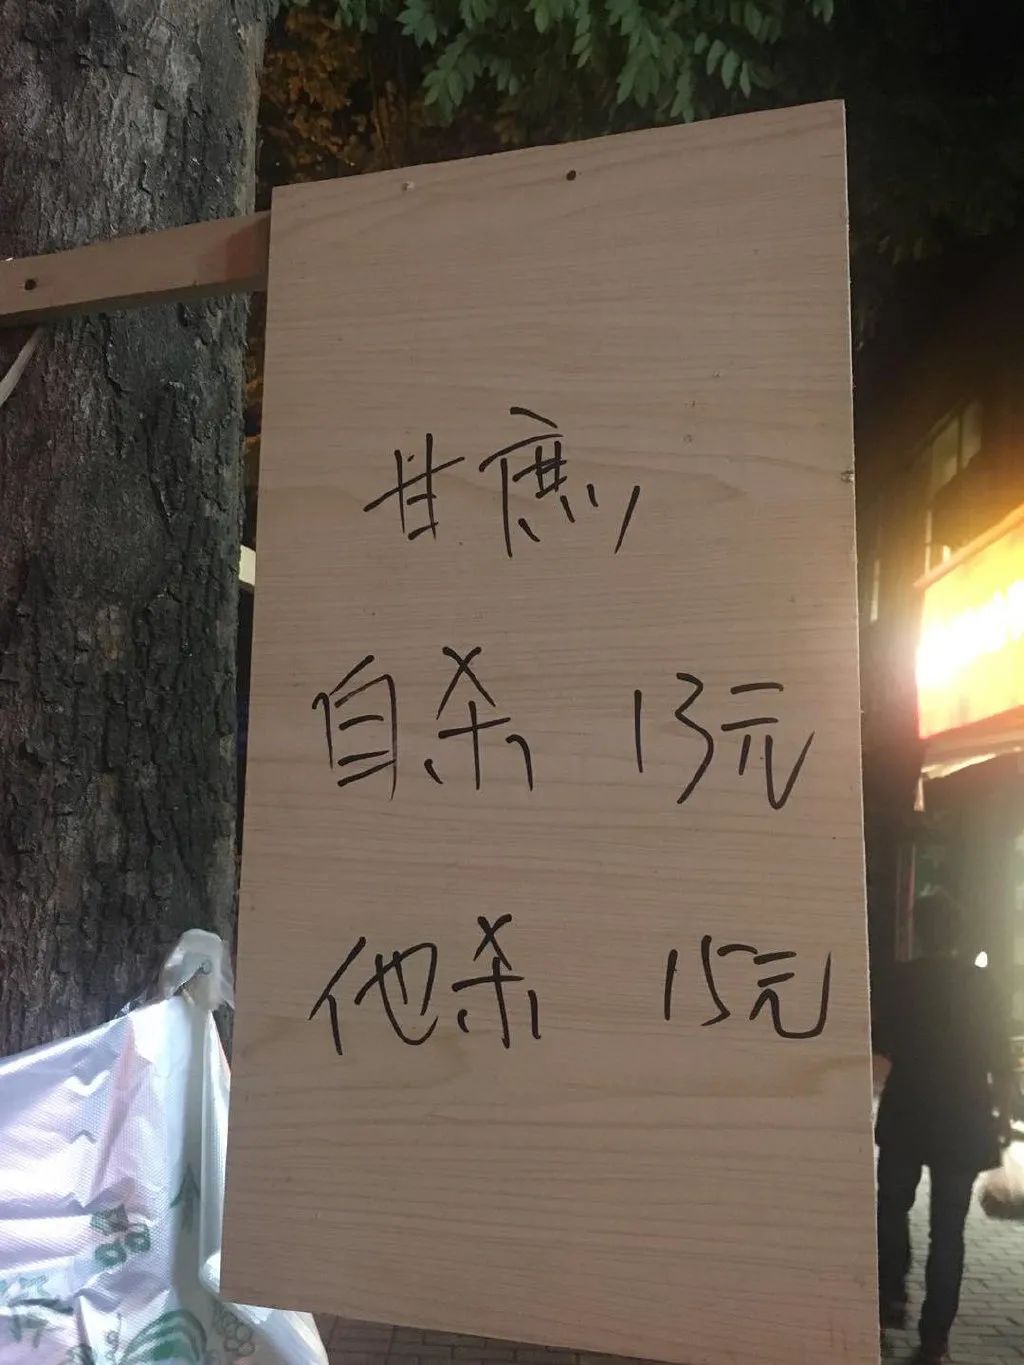 甘庶
自杀 13元
他杀 15元